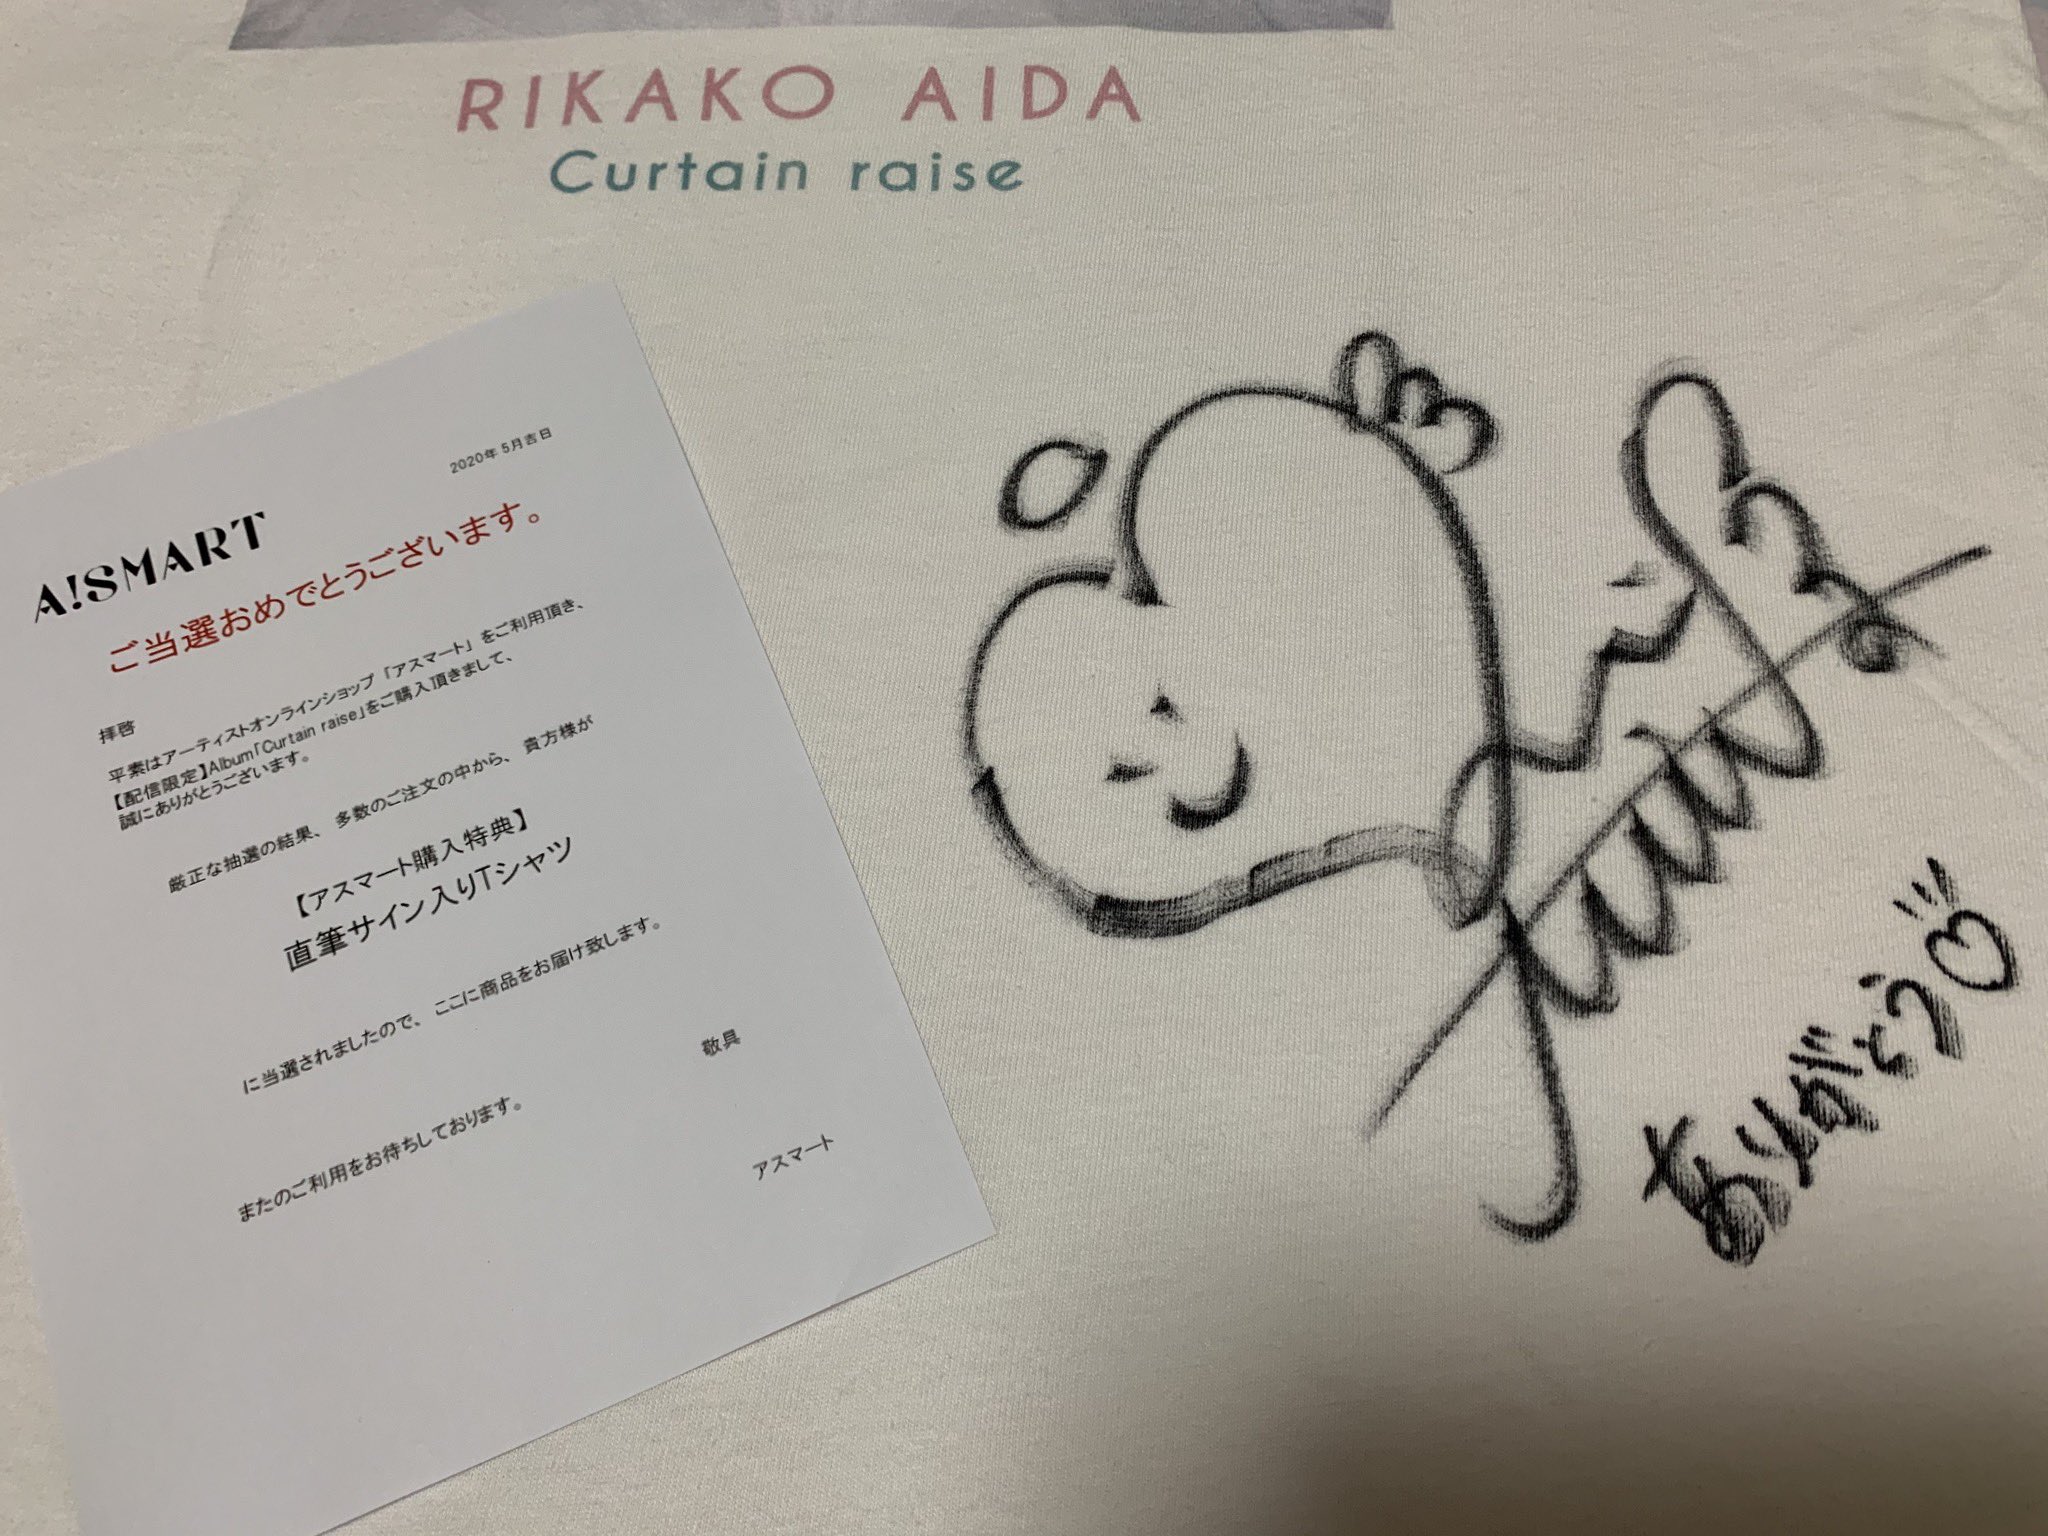 RIKAKO AIDA
Curtain raise
2020年 5月吉日
A!SMART
ご当選おめでとうございます。
拝啓
平素はアーティストオンラインショップ「アスマート」をご利用頂き、
【配信限定】Album「Curtain raise」をご購入頂きまして、
誠にありがとうございます。
厳正な抽選の結果、多数のご注文の中から、貴方様が
【アスマート購入特典】
直筆サイン入りTシャツ
に当選されましたので、ここに商品をお届け致します。
敬具
またのご利用をお待ちしております。
アスマート
ありがとう♡